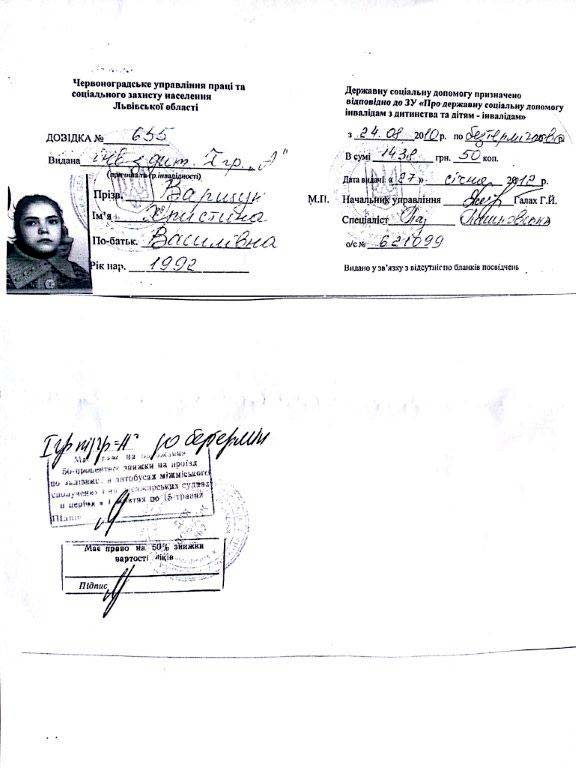 Червоноградське управління праці та
соціального захисту населення
Львівської області
ДОЗІДКА № 655
Видана інв. з дит. I гр. „А"
(причина та гр.інвалідності)
Прізв.
Ім'я Христина
По-батьк. Василівна
Рік нар. 1992
Державну соціальну допомогу призначено
відповідно до ЗУ «Про державну соціальну допомогу
інвалідам з дитинства та дітям - інвалідам»
з 24.08 2010 р. по безтерміново
В сумі 1438 грн. 50 коп.
Дата видачі «27» січня 2012 р.
М.П. Начальник управління Галах Г.Й.
Спеціаліст
о/с № 621099
Видано у зв'язку з відсутністю бланків посвідчень
I гр п/гр „А" до безтермін
Має на
50-процентної знижки на проїзд
по залізниці, в автобусах міжміського
сполучення і на пасажирських суднах
в період з 1 жовтня по 15 травня
Підпис
Має право на 50% знижки
вартості ліків
Підпис